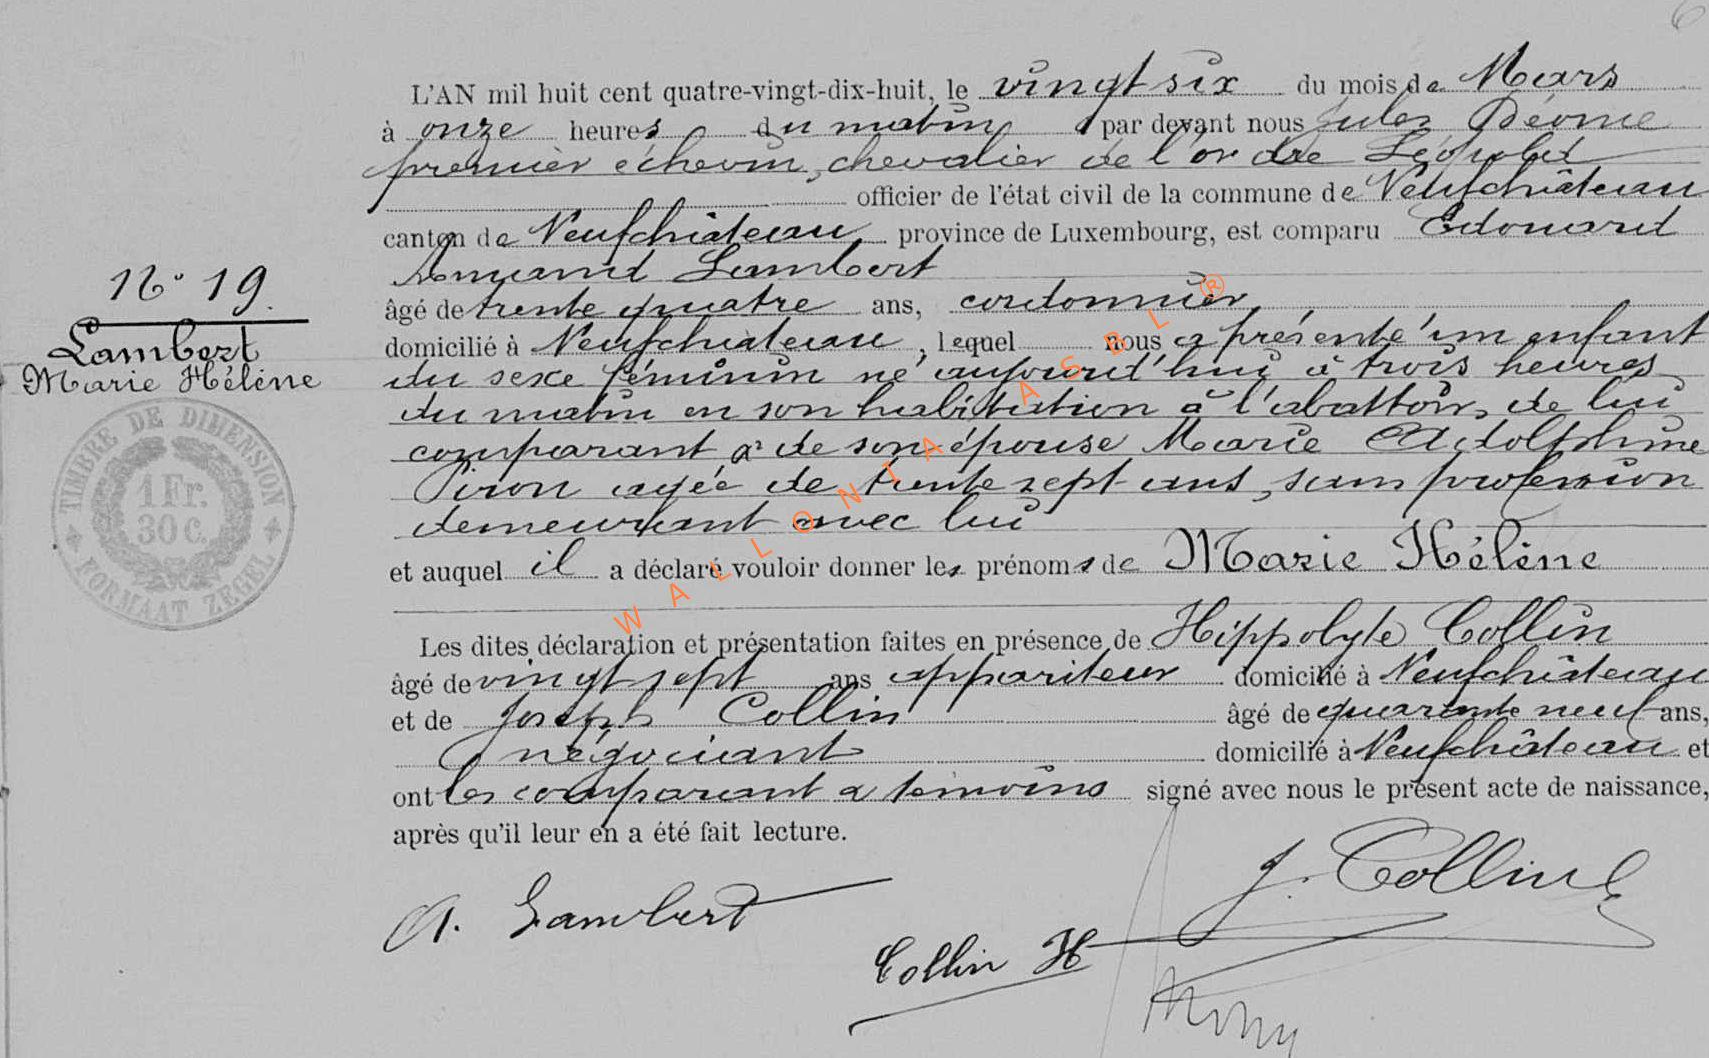 L'AN mil huit cent quatre-vingt-dix-huit, le vingt six du mois de Mars
à onze heures du matin par devant nous Jules
premier échevin, chevalier de l'ordre Léopold
officier de l'état civil de la commune de Neufchâteau
canton de Neufchâteau province de Luxembourg, est comparu Edouard
Armand Lambert
âgé de trente quatre ans, cordonnier
domicilié à Neufchâteau, lequel nous a présenté un enfant
du sexe féminin né aujourd'hui à trois heures
du matin en son habitation à l'abattoir, de lui
comparant & de son épouse Marie Adolphine
Piron agée de trente sept ans, sans profession
demeurant avec lui
et auquel il a déclaré vouloir donner les prénoms de Marie Hélène
Les dites déclaration et présentation faites en présence de Hippolyte Collin
âgé de vingt sept ans appariteur domicilié à Neufchâteau
et de Joseph Collin âgé de quarante neuf ans,
négociant domicilié à Neufchâteau et
ont les comparant & témoins signé avec nous le présent acte de naissance,
après qu'il leur en a été fait lecture.
N° 19.
Lambert
Marie Hélène
TIMBRE DE DIMENSION
1 Fr.
30 C.
FORMAAT ZEGEL
A. Lambert
J. Collin
Collin H
WALLONTA ASBL ®
6